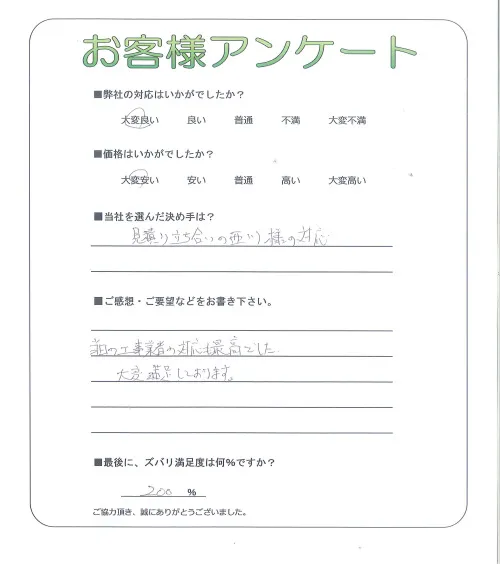 お客様アンケート
■弊社の対応はいかがでしたか？
大変良い 良い 普通 不満 大変不満
■価格はいかがでしたか？
大変安い 安い 普通 高い 大変高い
■当社を選んだ決め手は？
見積り立ち合いの西川様の対応
■ご感想・ご要望などをお書き下さい。
工事業者の対応も最高でした
大変満足しております。
■最後に、ズバリ満足度は何%ですか？
200 %
ご協力頂き、誠にありがとうございました。